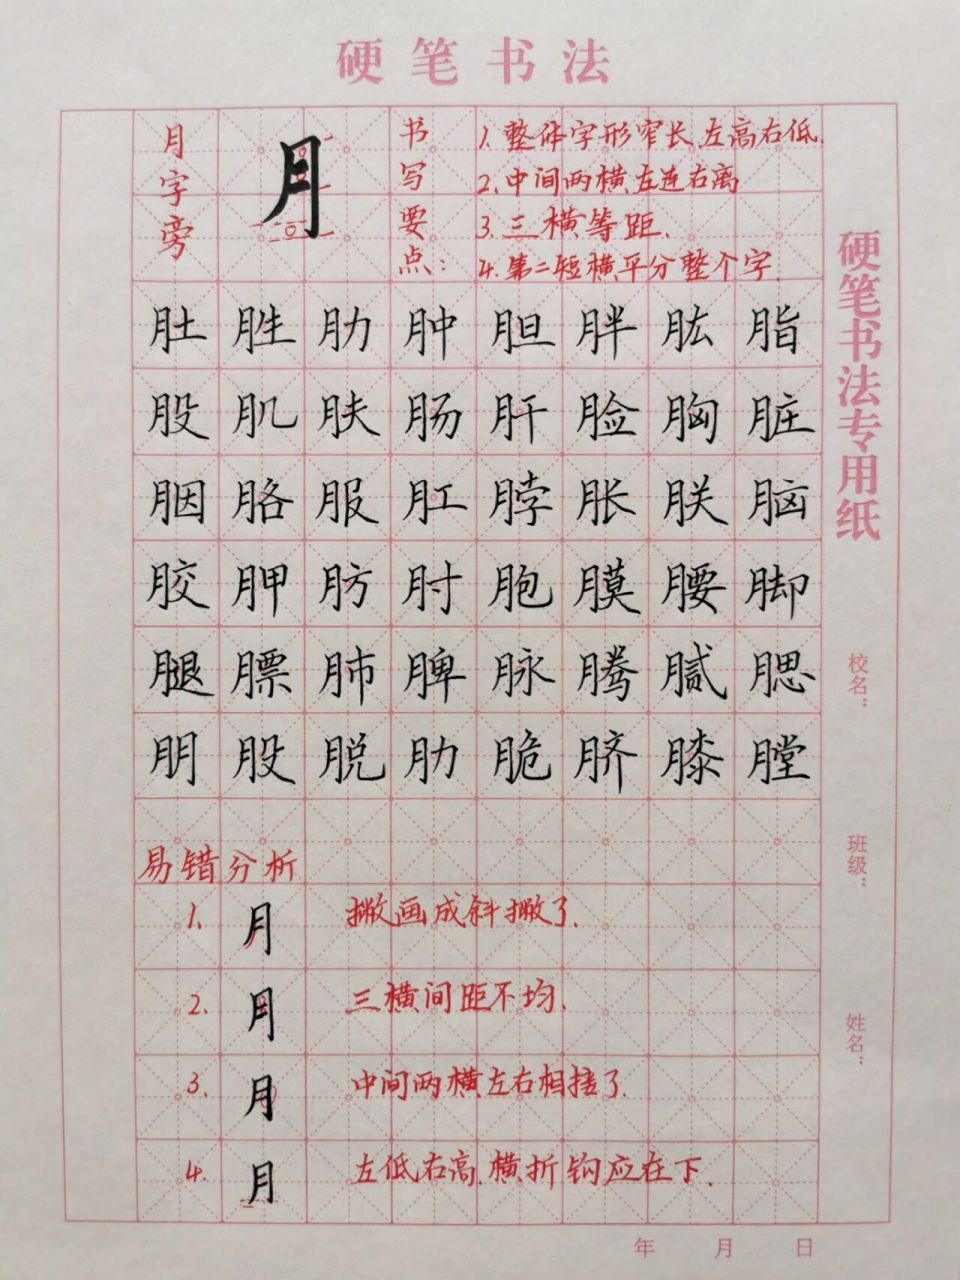 硬笔书法
月字旁
月
书写要点：
1.整体字形窄长,左高右低.
2.中间两横左连右离
3.三横等距.
4.第二短横平分整个字.
肚胜肋肿胆胖肱脂
股肌肤肠肝脸胸脏
胭胳服肛脖胀朕脑
胶胛肪肘胞膜腰脚
腿膘肺脾脉腾腻腮
朋股脱肋脆脐膝膛
易错分析
1. 月 撇画成斜撇了.
2. 月 三横间距不均.
3. 月 中间两横左右相接了.
4. 月 左低右高.横折钩应在下.
硬笔书法专用纸
校名：
班级：
姓名：
年 月 日